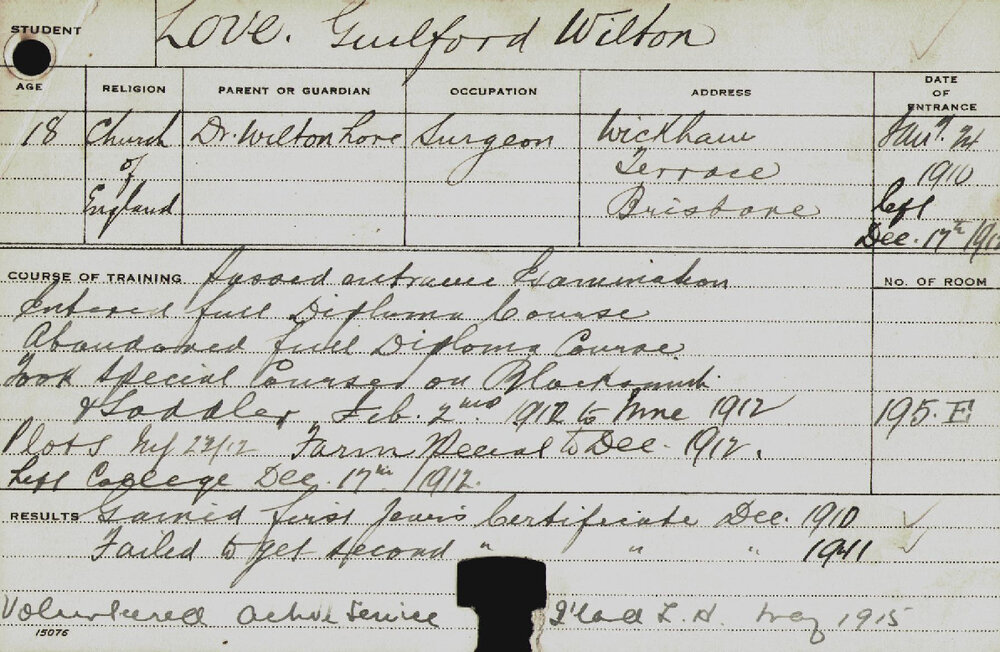 STUDENT Love. Guilford Wilton
AGE RELIGION PARENT OR GUARDIAN OCCUPATION ADDRESS DATE OF ENTRANCE
18 Church of England Dr. Wilton Love Surgeon Wickham Terrace Brisbane Jan. 24 1910
left
Dec. 17th 1912
COURSE OF TRAINING Passed entrance Examination
NO. OF ROOM
Entered full Diploma Course
Abandoned full Diploma Course.
Took Special Courses on Blacksmith
& Saddler, Feb. 2nd 1912 to June 1912
195. E
Plots 22/12 Farm Special to Dec. 1912.
Left College Dec. 17th 1912.
RESULTS Gained first Year's Certificate Dec. 1910
Failed to get second " " " 1911
Volunteered active service L. H. May 1915
15076